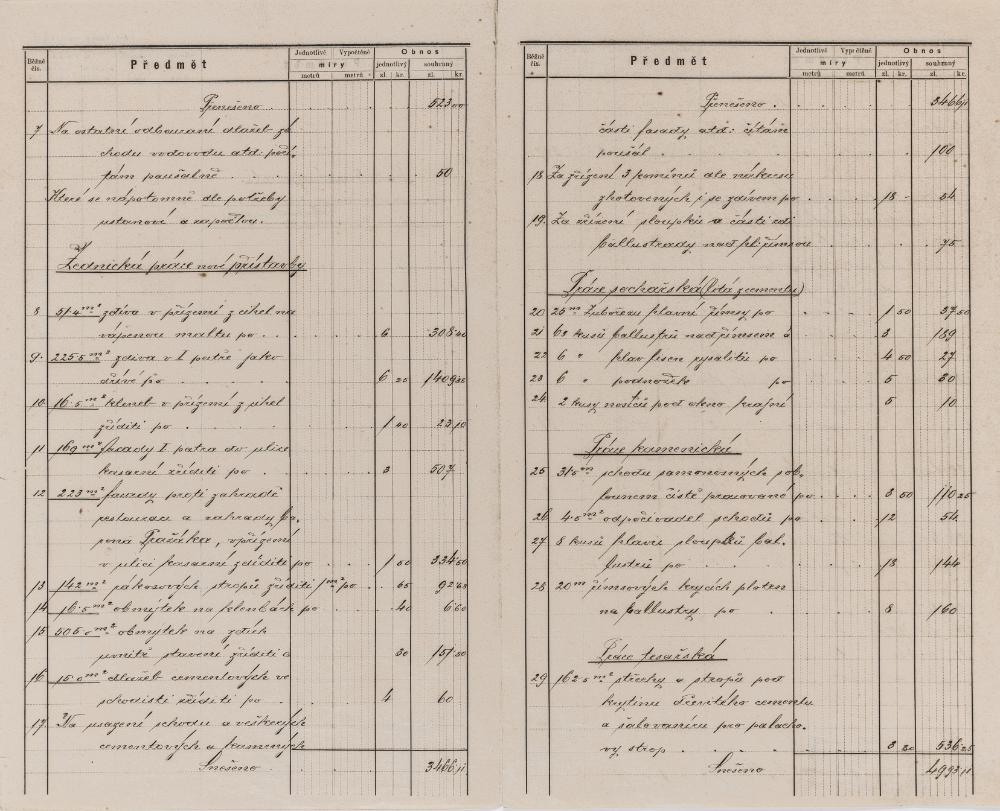 Běžné čís.
Předmět
Jednotlivé Vypočtěné
míry
metrů metrů
Obnos
jednotlivý souhrnný
zl. kr. zl. kr.
Přenešeno 523 00
7 Na ostatní odbourání dlažeb zá
chodu vodovodu atd: počí,
tám paušálně 50
Které se nápotomně dle potřeby
ustanoví a započtou.
Zednická práce nové přístavby
8 51·4 m² zdiva v přízemí z cihel na
vápenou maltu po 6 308 40
9. 225·5 m² zdiva v I patře jako
dříve po 6 20 1409 35
10. 16·5 m² kleneb v přízemí z cihel
zříditi po 1 40 23 10
11 169 m² fasády I. patra do ulice
kasární zříditi po 3 507
12 223 m² fasády proti zahradě
restaurací a zahrady ba,
rona Pražáka, v přízemí
v ulici kasární zříditi po 1 50 334 50
13 142 m² rákosových stropů zříditi 1 m² po 65 92 63
14 16·5 m² obmýtek na klenbách po 40 6 60
15 505·0 m² obmýtek na zdích
uvnitř stavení zříditi á 30 151 50
16 15·0 m² dlažeb cementových ve
schodišti zříditi po 4 60
17. Na usazení schodů a veškerých
cementových a kamených
Snešeno 3466 11
Běžné čís.
Předmět
Jednotlivé Vypočtěné
míry
metrů metrů
Obnos
jednotlivý souhrnný
zl. kr. zl. kr.
Přenešeno 3466 11
části fasády atd: čítám
paušál 100
18 Za zřízení 3 komínů dle nákresu
zhotovených i se zdivem po 18 - 54
19. Za zřízení sloupků a části zdi
ballustrady nad hl: římsou 75
Práce sochařská (lita z cementu)
20 25 m hlavní římsy po 1 50 37 50
21 63 kusů ballustrů nad římsem á 3 189
22 6 " hlav lisen rysalitů po 4 50 27
23 6 " podnožek po 5 30
24. 2 kusy nosičů pod okno krajní 5 10
Práce kamenická
25 31·5 m schodů samonosných
čistě pracované po 3 50 110 25
26 4·5 m² odpočívadel schodů po 12 54
27 8 kusů hlavu sloupků bal,
lustrů po 18 144
28 20 m římsových krycích ploten
na ballustry po 8 160
Práce tesařská
29 162·5 m² střechy a stropů pod
krytinu dřevitého cementu
a šalovanicu pro palacho,
vý strop 3 30 536 25
Snešeno 4993 11